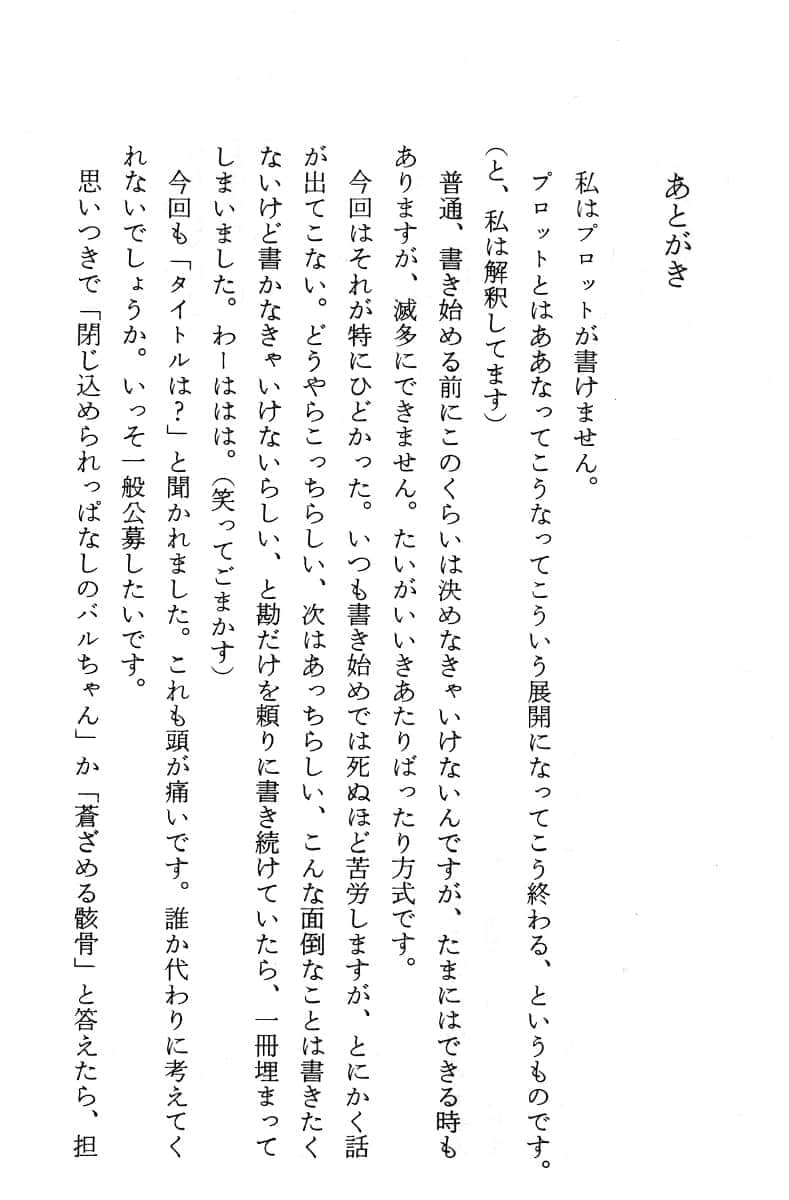 あとがき
私はプロットが書けません。
プロットとはああなってこうなってこういう展開になってこう終わる、というものです。
(と、私は解釈してます)
普通、書き始める前にこのくらいは決めなきゃいけないんですが、たまにはできる時も
ありますが、滅多にできません。たいがいいきあたりばったり方式です。
今回はそれが特にひどかった。いつも書き始めでは死ぬほど苦労しますが、とにかく話
が出てこない。どうやらこっちらしい、次はあっちらしい、こんな面倒なことは書きたく
ないけど書かなきゃいけないらしい、と勘だけを頼りに書き続けていたら、一冊埋まって
しまいました。わーははは。(笑ってごまかす)
今回も「タイトルは?」と聞かれました。これも頭が痛いです。誰か代わりに考えてく
れないでしょうか。いっそ一般公募したいです。
思いつきで「閉じ込められっぱなしのバルちゃん」か「蒼ざめる骸骨」と答えたら、担